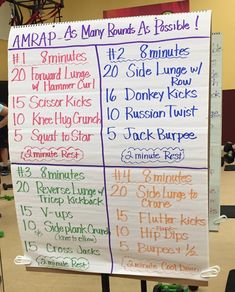 AMRAP - As Many Rounds As Possible!
#1 8 minutes
20 Forward Lunge
w/ Hammer Curl
15 Scissor Kicks
10 Knee Hug Crunch
5 Squat to Star
2 minute Rest
#2 8 minutes
20 Side Lunge w/
Row
16 Donkey Kicks
10 Russian Twist
5 Jack Burpee
2 minute Rest
#3 8 minutes
20 Reverse Lunge w/
Tricep Kickback
15 V-ups
10 Side plank Crunch
(knee to elbow)
15 Cross Jacks
2 minute Rest
#4 8 minutes
20 Side Lunge to
Crane
15 Flutter Kicks
10 Hip Dips
5 Burpees ½
2 minute Cool Down